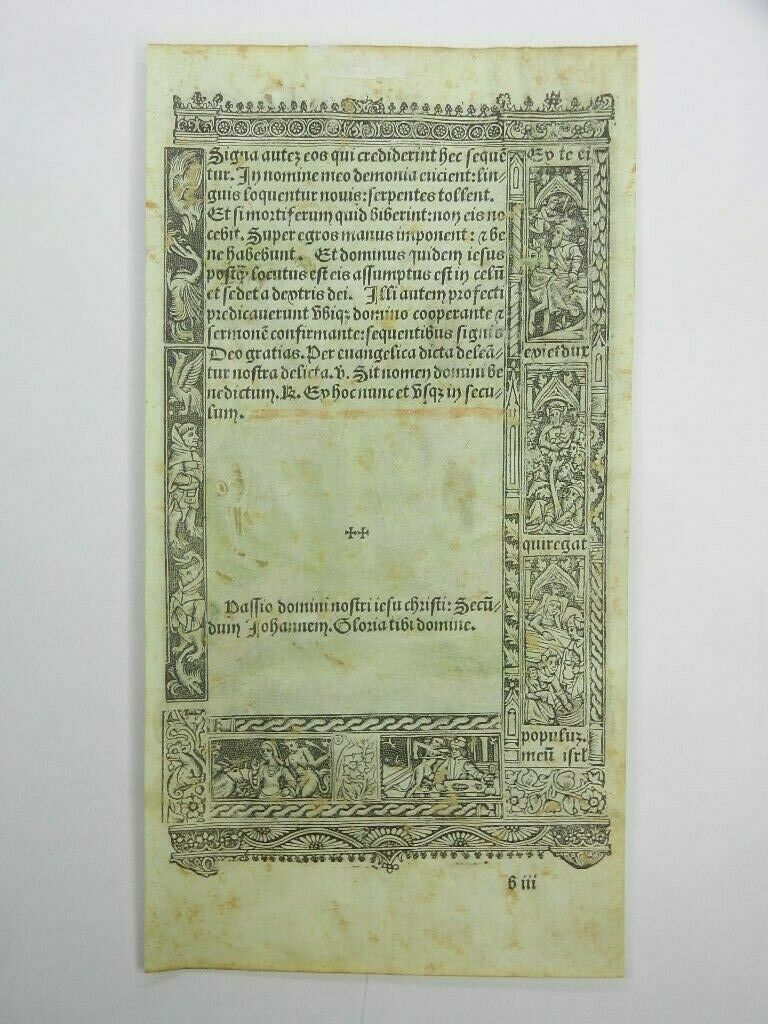 Signa autez eos qui crediderint hec sequẽ
tur. In nomine meo demonia eiicient: lin-
guis loquentur nouis: serpentes tollent.
Et si mortiferum quid biberint: non eis no
cebit. Super egros manus imponent: ⁊ be
ne habebunt. Et dominus quidem iesus
postꝙ locutus est eis assumptus est in celũ
et sedet a dextris dei. Illi autem profecti
predicauerunt vbiqꝫ domino cooperante ⁊
sermonẽ confirmante: sequentibus signis
Deo gratias. Per euangelica dicta deleã-
tur nostra delicta. v. Sit nomen domini be
nedictum. ꝶ. Ex hoc nunc et vsqꝫ in secu-
lum.
✠✠
Passio domini nostri iesu christi: Secũ-
dum Johannem. Gloria tibi domine.
Ex te ei
exiet dux
qui regat
populuz.
meũ isrl
b iii